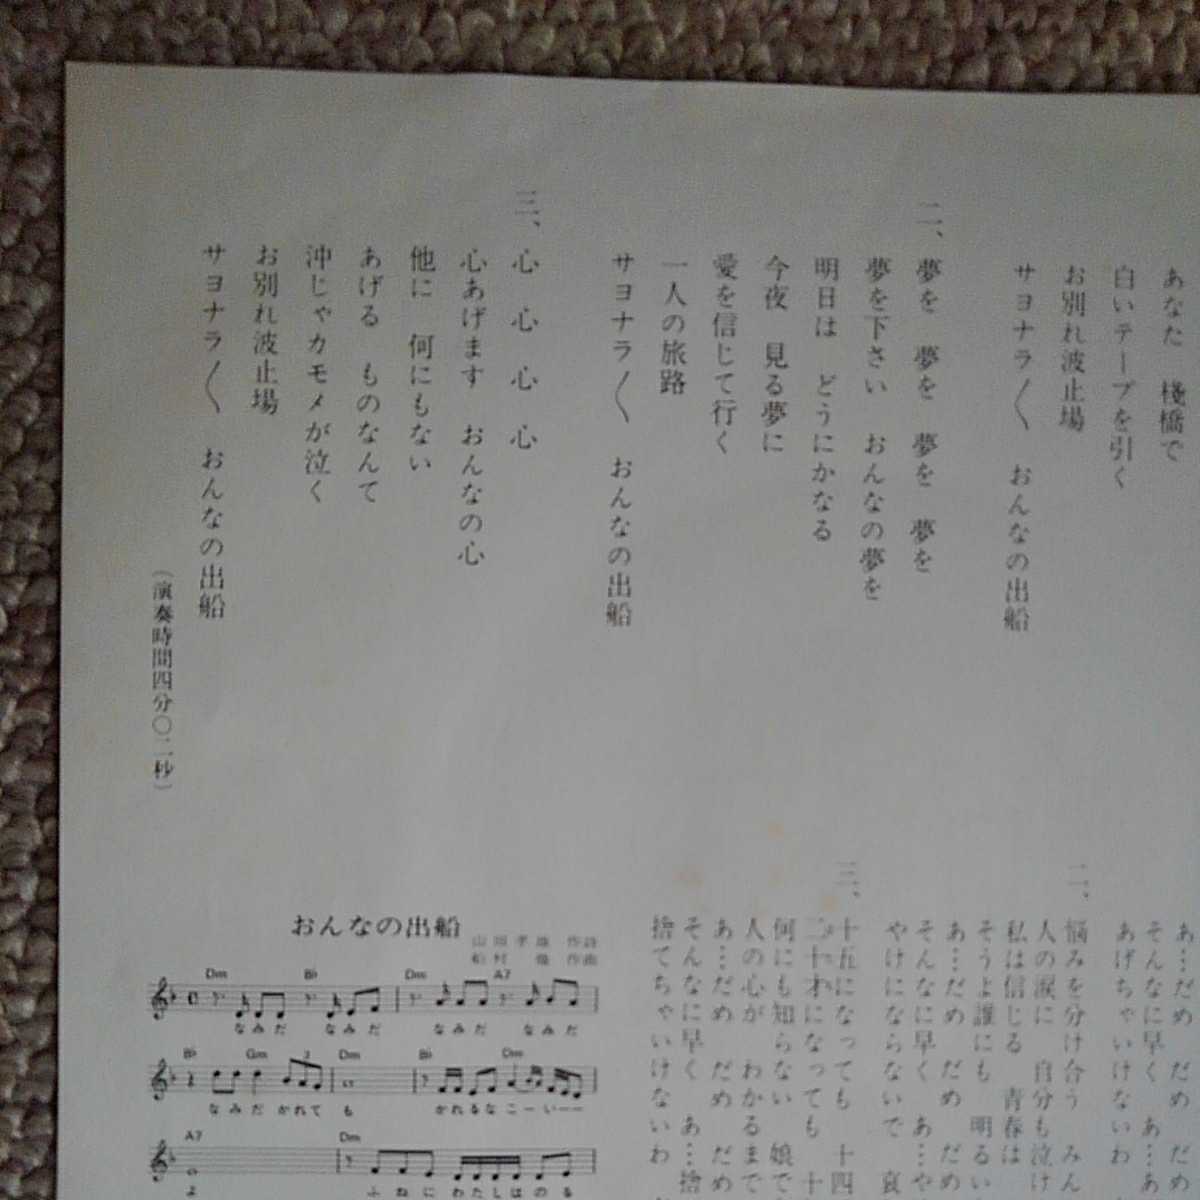 あなた　棧橋で
白いテープを引く
お別れ波止場
サヨナラ〳〵　おんなの出船
二、夢を　夢を　夢を　夢を
夢を下さい　おんなの夢を
明日は　どうにかなる
今夜　見る夢に
愛を信じて行く
一人の旅路
サヨナラ〳〵　おんなの出船
三、心　心　心　心
心あげます　おんなの心
他に　何にもない
あげる　ものなんて
沖じゃカモメが泣く
お別れ波止場
サヨナラ〳〵　おんなの出船
（演奏時間四分〇二秒）
あ…だめ　だめ
そんなに早く　あ…あ
あげちゃいけないわ
二、悩みを分け合う　みん
人の涙に　自分も泣け
私は信じる　青春は
そうよ誰にも　明るい
あ…だめ　だめ　だめ
そんなに早く　あ…や
やけにならないで　哀
三、十五になっても　十四
二十才になっても　十
何にも知らない　娘で
人の心が　わかるまで
あ…だめ　だめ　だめ
そんなに早く　あ…捨
捨てちゃいけないわ
おんなの出船
作詩
作曲
Dm B♭ Dm A7
なみだ　なみだ　なみだ　なみだ
B♭ Gm Dm B♭ Dm
なみだ かれて も かれるなこーいーー
A7 Dm
よ ふねにわたしはのる